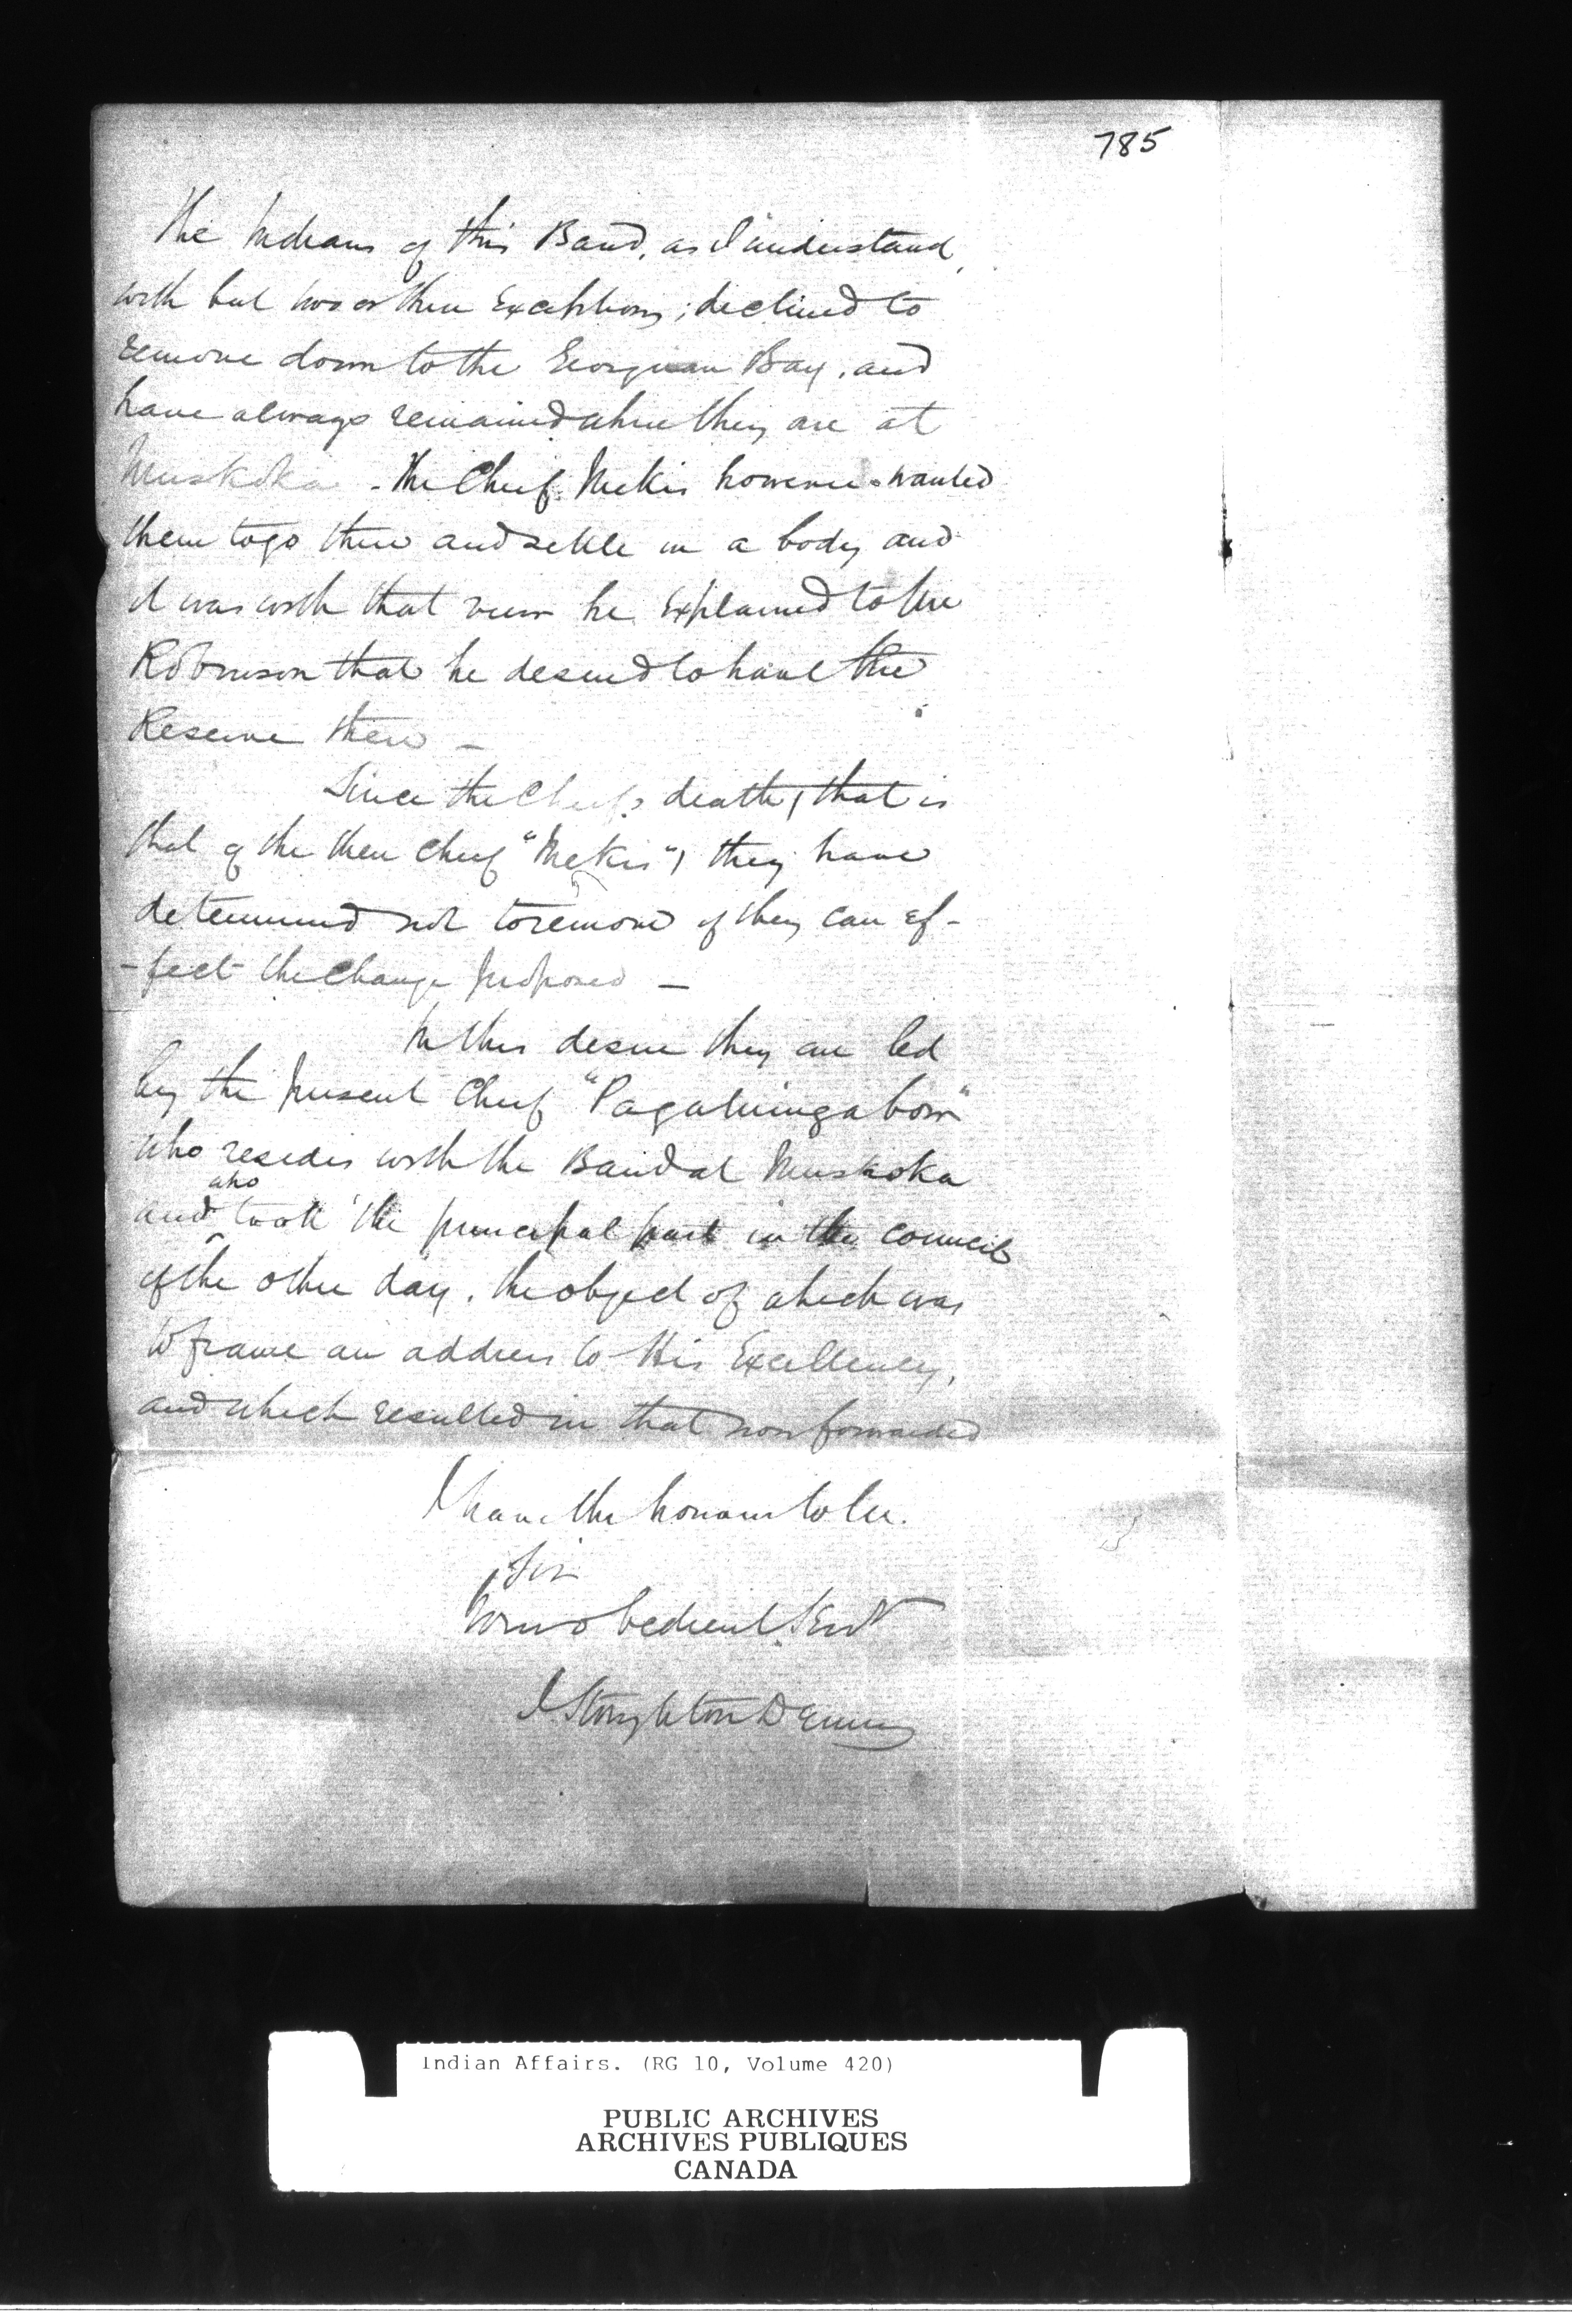 785
The Indians of this Band, as I understand,
with but two or three Exceptions; declined to
remove down to the Georgian Bay, and
have always remained where they are at
Muskoka - The Chief Mekis however wanted
them to go there and settle in a body and
it was with that view he Explained to Mr
Robinson that he desired to have the
Reserve there -
Since the Chief's death, (that is
that of the then Chief "Mekis") they have
determined not to remove if they can ef-
-fect the change proposed -
In this desire they are led
by the present Chief "Pagahmingabow"
who resides with the Band at Muskoka
who
and took the principal part in the council
of the other day. the object of which was
to frame an address to His Excellency,
and which resulted in that now forwarded
I have the honour to be.
Sir
Your obedient Servt
J Stoughton Dennis
Indian Affairs. (RG 10, Volume 420)
PUBLIC ARCHIVES
ARCHIVES PUBLIQUES
CANADA